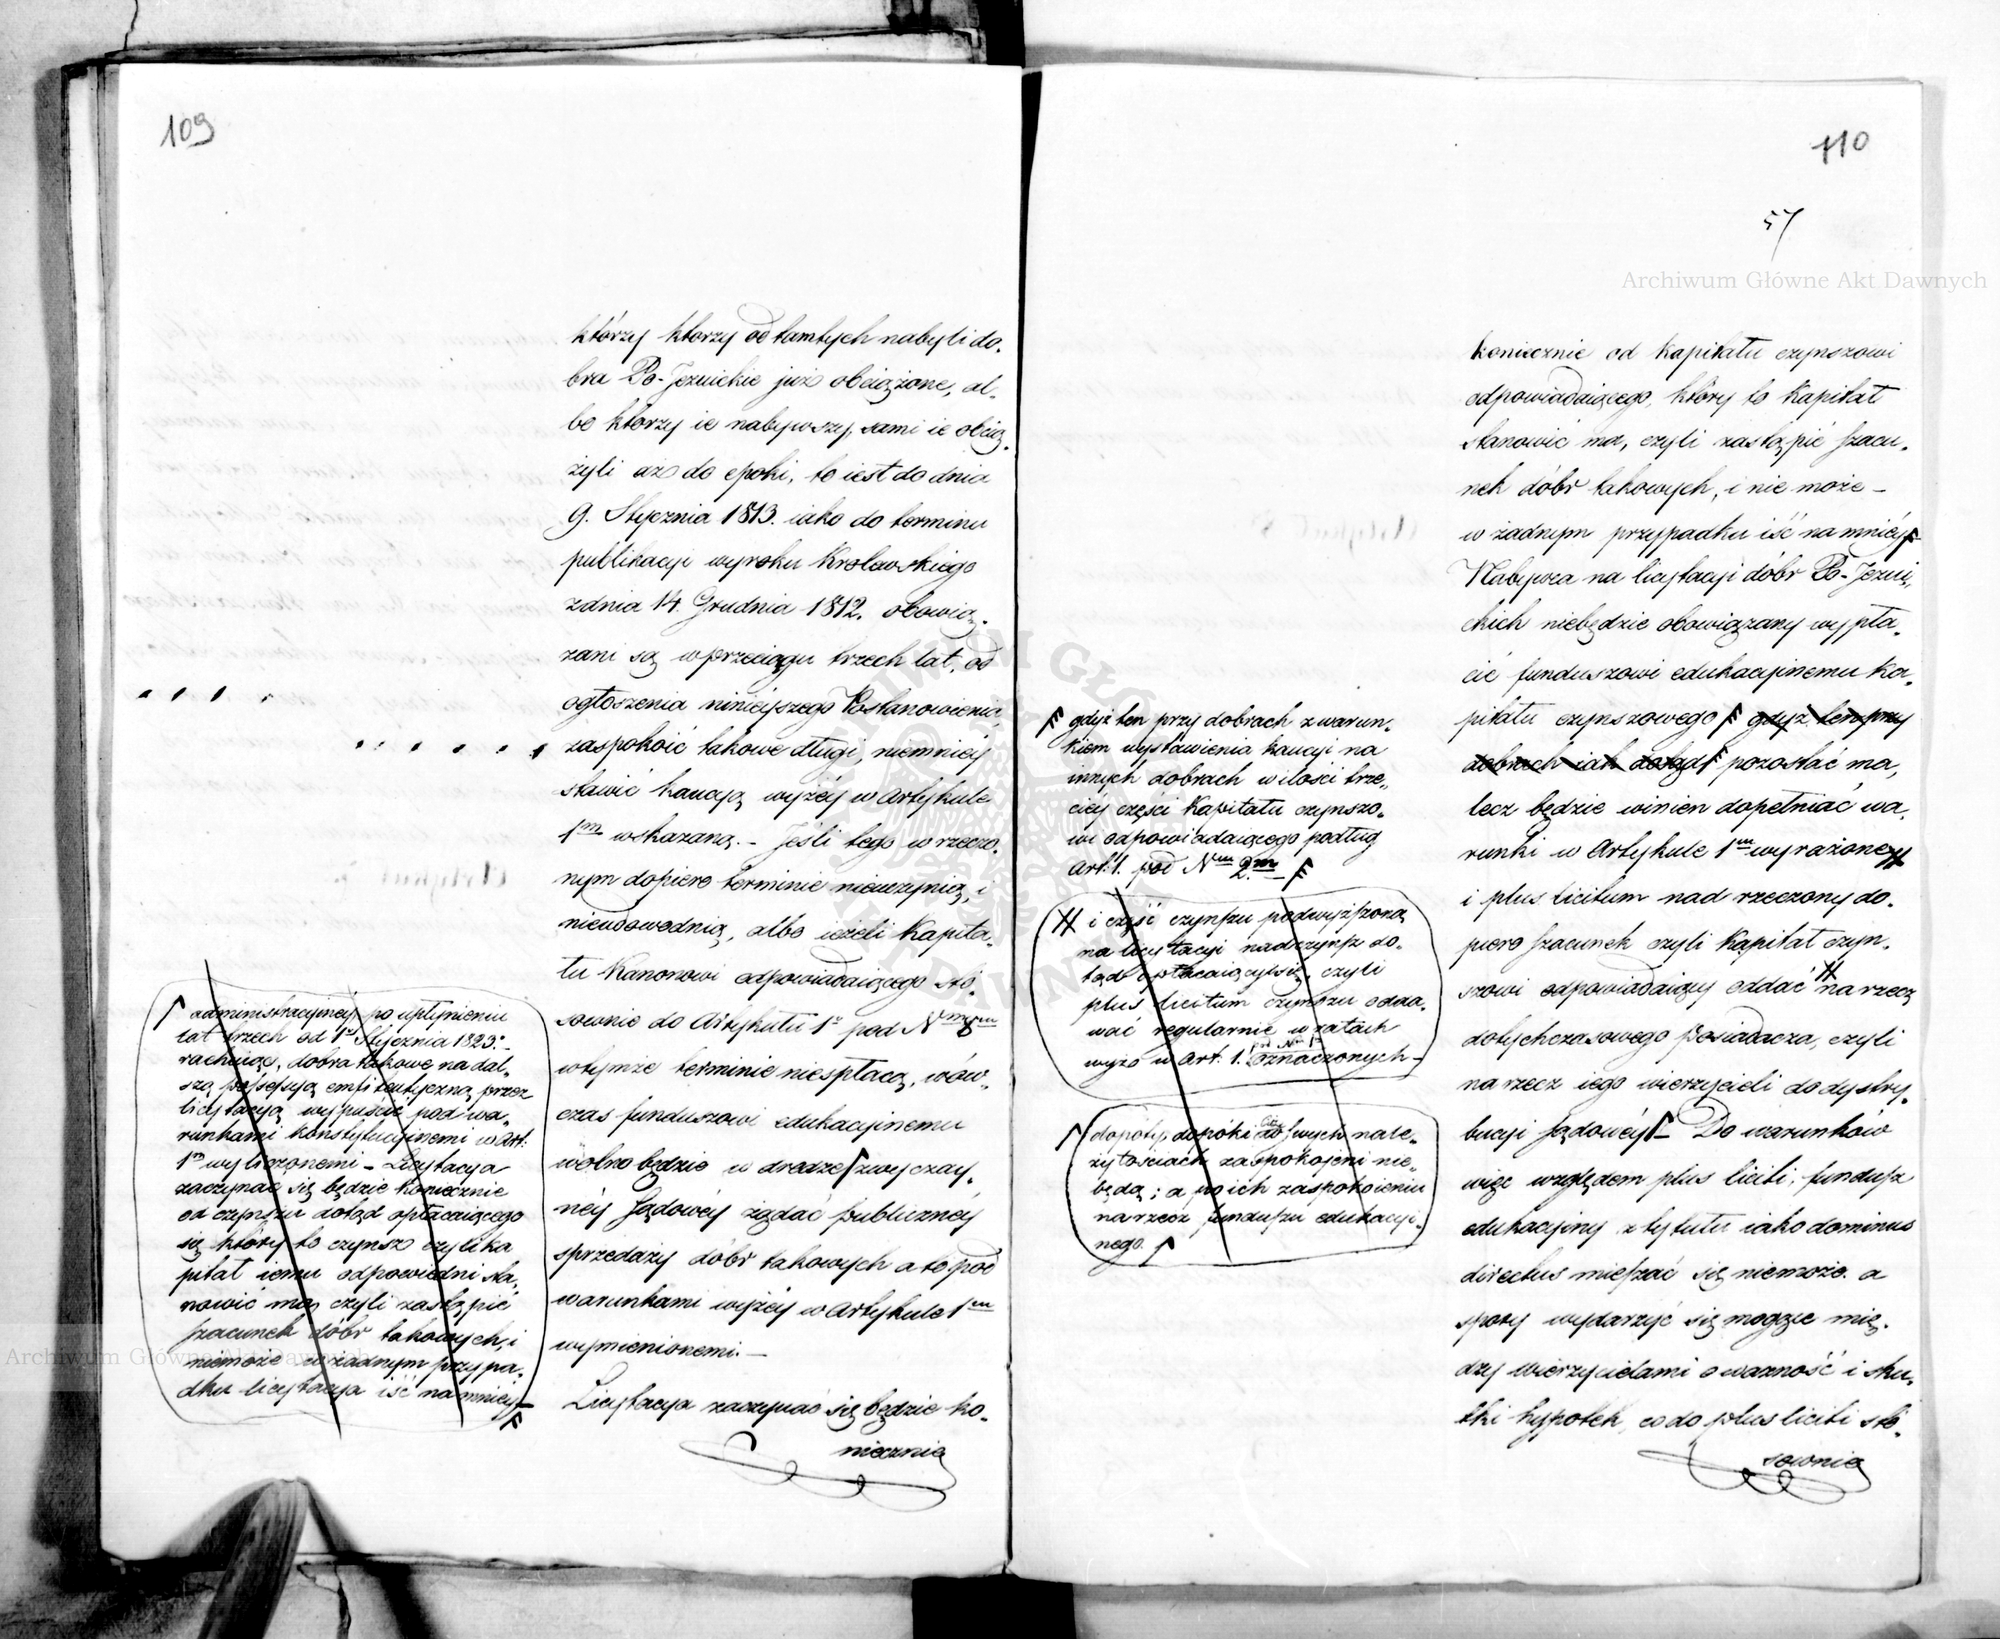 109
którzy ktorzy od tamtych nabyli do-
bra Po-Jezuickie już obciążone, al-
bo ktorzy ie nabywszy, sami ie obcią-
żyli aż do epoki, to iest do dnia
9. Stycznia 1813. iako do terminu
publikacyi wyroku Krolewskiego
z dnia 14. Grudnia 1812. obowią-
zani są w przeciągu trzech lat, od
ogłoszenia ninieyszego Postanowienia
zaspokoić takowe długi, niemniéy
stawić kaucyą wyżéy w Artykule
1m wskazaną. - Jeśli tego w rzeczo-
nym dopiero terminie nieuczynią, i
nieudowodnią, albo ieżeli Kapita-
łu Kanonowi odpowiadaiącego sto-
sownie do Artykułu 1o pod Nrem 8m
w tymże terminie niespłacą, wów-
czas funduszowi edukacyinemu
wolno będzie w drodze zwyczay-
néy sądowéy żądać publicznéy
sprzedaży dóbr takowych a to pod
warunkami wyżéy w Artykule 1m
wymienionemi. -
Licytacya zaczynać się będzie ko-
niecznie
administracyinéy, po upłynieniu
lat trzech od 1o Stycznia 1823o
rachuiąc, dobra takowe na dal-
szą possessyą emfiteutyczną przez
licytacyą wypuścić pod wa-
runkami konstytucyinemi w Art:
1m wyliczonemi - Licytacya
zaczynać się będzie koniecznie
od czynszu dotąd opłacaiącego
się który to czynsz czyli ka
pitał iemu odpowiedni sta-
nowić ma, czyli zastąpić
szacunek dóbr takowych, i
niemoże w żadnym przypa-
dku licytacya iść na mniéy
110
57
koniecznie od Kapitału czynszowi
odpowiadaiącego, który to Kapitał
stanowić ma, czyli zastąpić szacu-
nek dóbr takowych, i nie może -
w żadnym przypadku iść na mniéy
Nabywca na licytacyi dóbr Po-Jezui-
ckich niebędzie obowiązany wypła-
cić funduszowi edukacyinemu Ka-
pitału czynszowego gdyż ten przy
dobrach iak dotąd pozostać ma,
lecz będzie winien dopełniać wa-
runki w Artykule 1m wyrażone
i plus licitum nad rzeczony do-
piero szacunek czyli Kapitał czyn-
szowi odpowiadaiący oddać na rzecz
dotychczasowego Posiadacza, czyli
na rzecz iego wierzycieli do dystry-
bucyi sądowéy - Do warunków
więc względem plus liciti, fundusz
edukacyiny z tytułu iako dominus
directus mieszać się niemoże. a
spory wydarzyć się mogące mię-
dzy wierzycielami o ważność i sku-
tki hypotek, co do plus liciti sto-
sownie
gdyż ten przy dobrach z warun-
kiem wystawienia kaucyi na
innych dobrach w ilości trze-
ciéy części Kapitału czynszo-
wi odpowiadaiącego podług
Art: 1. pod Nrem 2m
i część czynszu podwyższoną
na licytacyi nad czynsz do-
tąd opłacaiący się, czyli
plus licitum czynszu odda-
wać regularnie w ratach
wyżéy w Art: 1. oznaczonych -
dopóty, dopóki swych nale-
żytościach zaspokojeni nie-
będą; a po ich zaspokoieniu
na rzecz funduszu edukacyi-
nego.
Archiwum Główne Akt Dawnych
Archiwum Główne Akt Dawnych